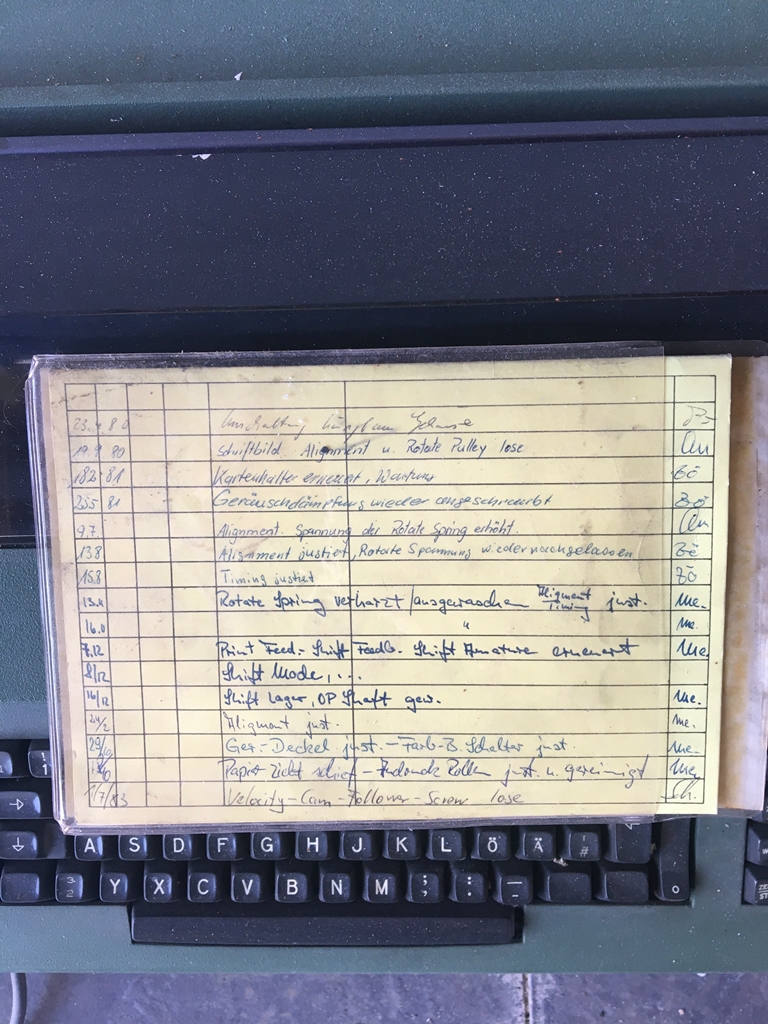 23.4 80 Umschaltung hängt am Gehäuse
19.9 80 Schriftbild. Alignment u. Rotate Pulley lose An
18.2.81 Kartenhalter erneuert, Wartung Bö
25.5 81 Geräuschdämpfung wieder angeschraubt Bö
9.7. Alignment. Spannung der Rotate Spring erhöht. An
13.8 Alignment justiert, Rotate Spannung wieder nachgelassen Bö
15.8 Timing justiert Bö
13.11 Rotate Spring verharzt / ausgewaschen Aligment Timing just. Me.
16.11 " Me.
7.12 Print Feed.- Shift Feedb. Shift Armature erneuert Me.
8/12 Shift Mode, ...
16/12 Shift Lager, OP Shaft gew. Me.
24/2 Aligment just. Me.
29/10 Ger.-Deckel just. - Farb-B. Schalter just. Me.
Papier zieht schief - Andruck Rollen just. u. gereinigt Me.
1/7/83 Velocity-Cam-Follower-Screw lose Sch.
A S D F G H J K L Ö Ä #
3 2 Y X C V B N M ; , : . _ -